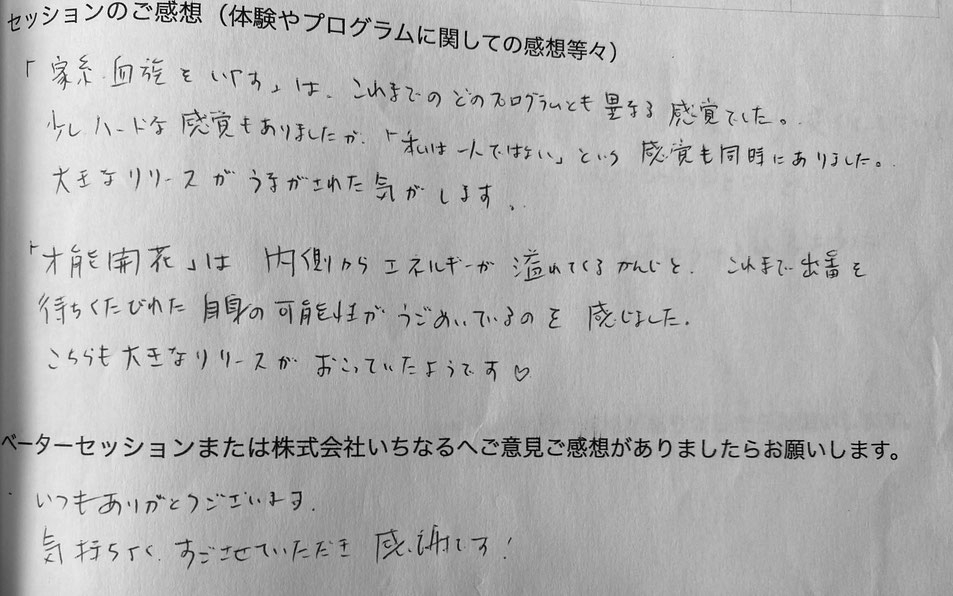 セッションのご感想（体験やプログラムに関しての感想等々）
「家系・血族をいやす」は、これまでのどのプログラムとも異なる感覚でした。
少しハードな感覚もありましたが、「私は一人ではない」という感覚も同時にありました。
大きなリリースがうながされた気がします。
「才能開花」は内側からエネルギーが溢れてくるかんじと、これまで出番を
待ちくたびれた自身の可能性がうごめいているのを感じました。
こちらも大きなリリースがおこっていたようです♡
ベーターセッションまたは株式会社いちなるへご意見ご感想がありましたらお願いします。
いつもありがとうございます。
気持ちよく、すごさせていただき感謝です！